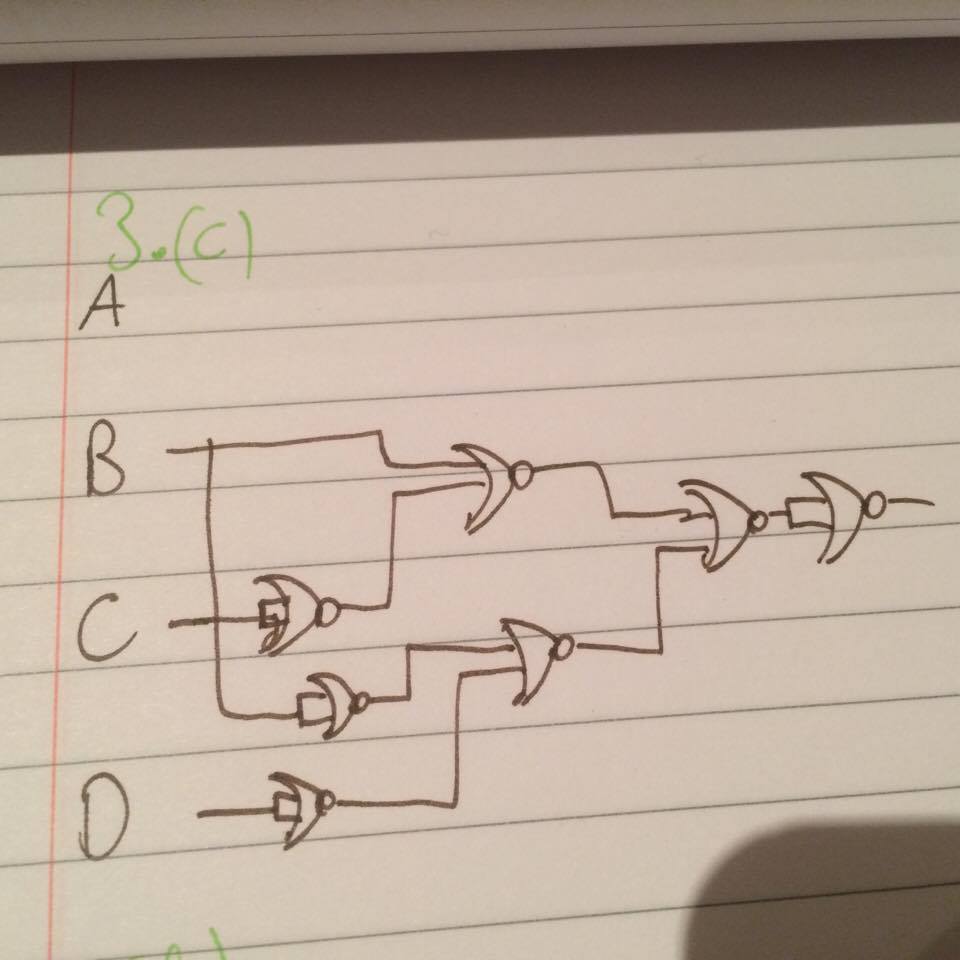 3.(c)
A
B
C
D